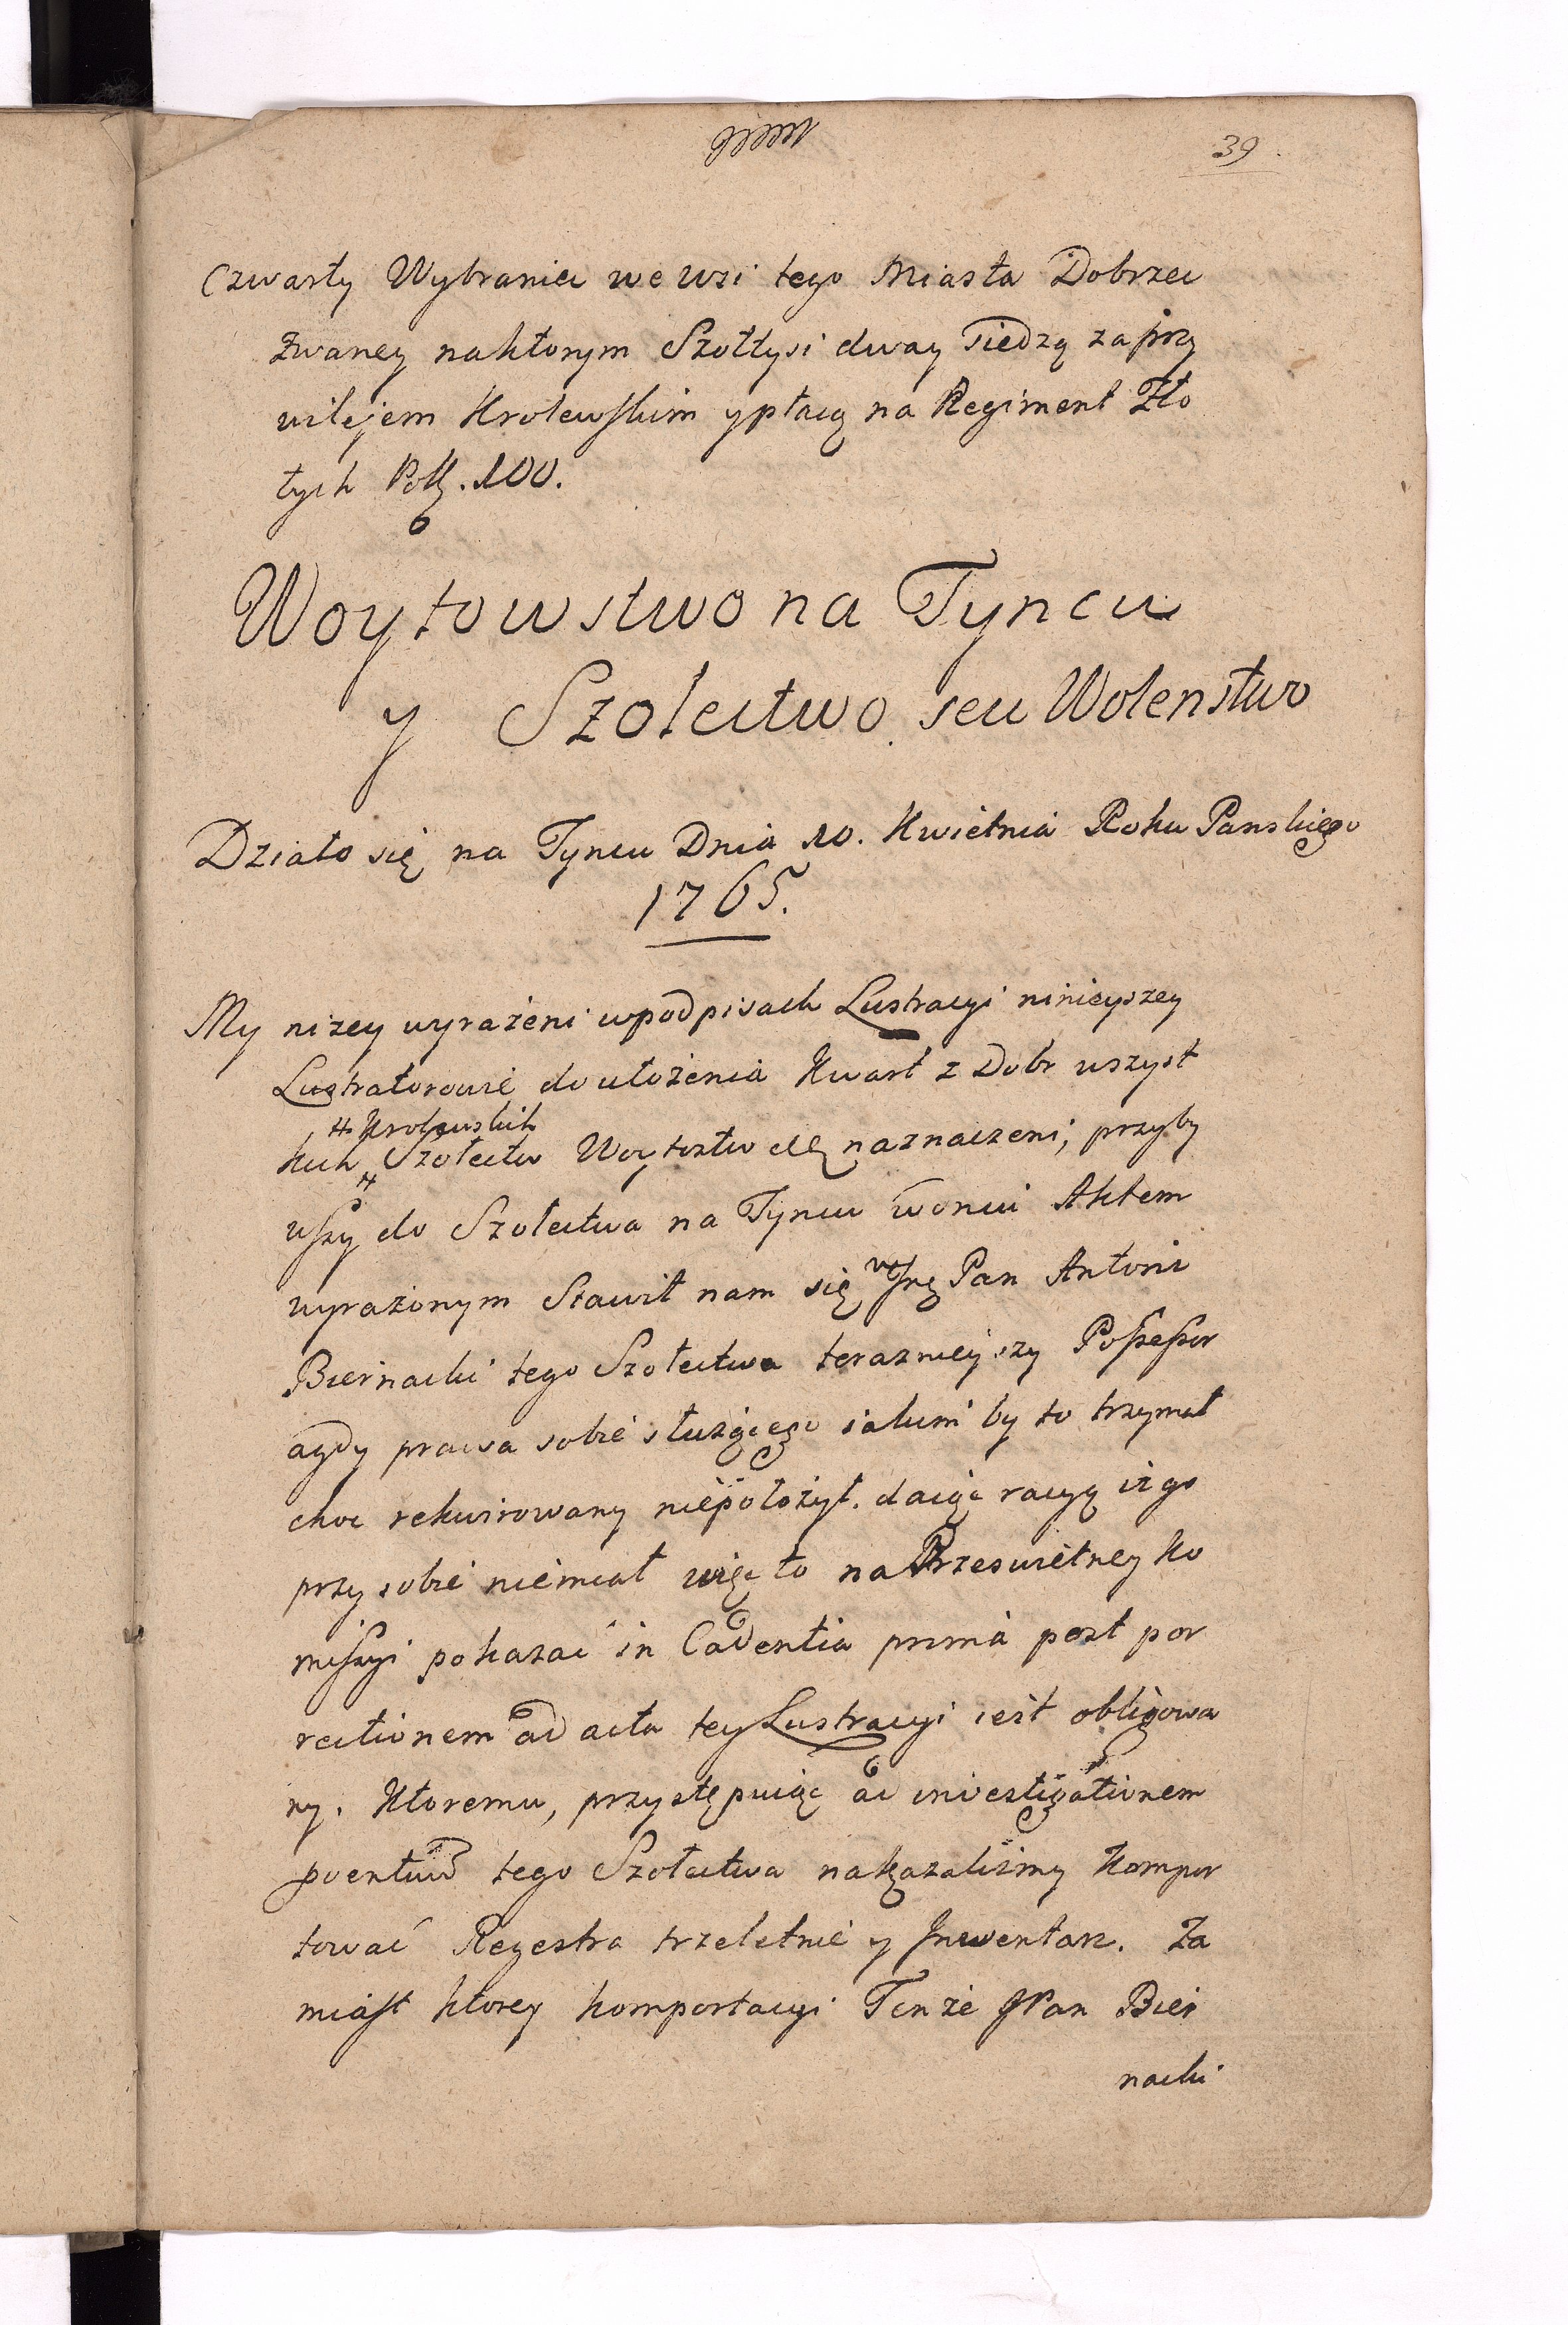 39
Czwarty Wybraniec we wsi tego Miasta Dobrzec
zwaney naktorym Szołtysi dway siedzą zaprzy
wilejem Krolewskim ypłacą na Regiment Zło
tych Polſ. 100.
Woytowstwo na Tyncu
y Szolectwo seu Wolenstwo
Działo się na Tyncu Dnia 10. Kwietnia Roku Panskiego
1765.
My niżey wyrażeni wpodpisach Lustracyi ninieyszey
Lustratorowie do ułożenia Kwart z Dobr wszyst
# Krolewskich
kich # Szołectw Woytostw naznaczeni, przyby
wſzy do Szołectwa na Tyncu Aktem
wyrażonym Stawił nam się Pan Antoni
Biernacki tego Szołectwa teraznieyszy Poſseſsor
agdy prawa sobie służącego iakim by to trzymał
choc rekwirowany niepołożył. daiąc racyą iż go
przy sobie niemiał więc to na Przeswietney Ko
miſsyi pokazac in Cadentia prima post por
rectionem ad acta tey Lustracyi iest obligowa
ny. Ktoremu, przystępuiąc ad investigationem
poentuw tego Szołectwa nakazalismy kompor
towac Regestra trzeletnie y Inwentarz. Za
miaſt ktorey komportacyi Tenże JPan Bier
nacki